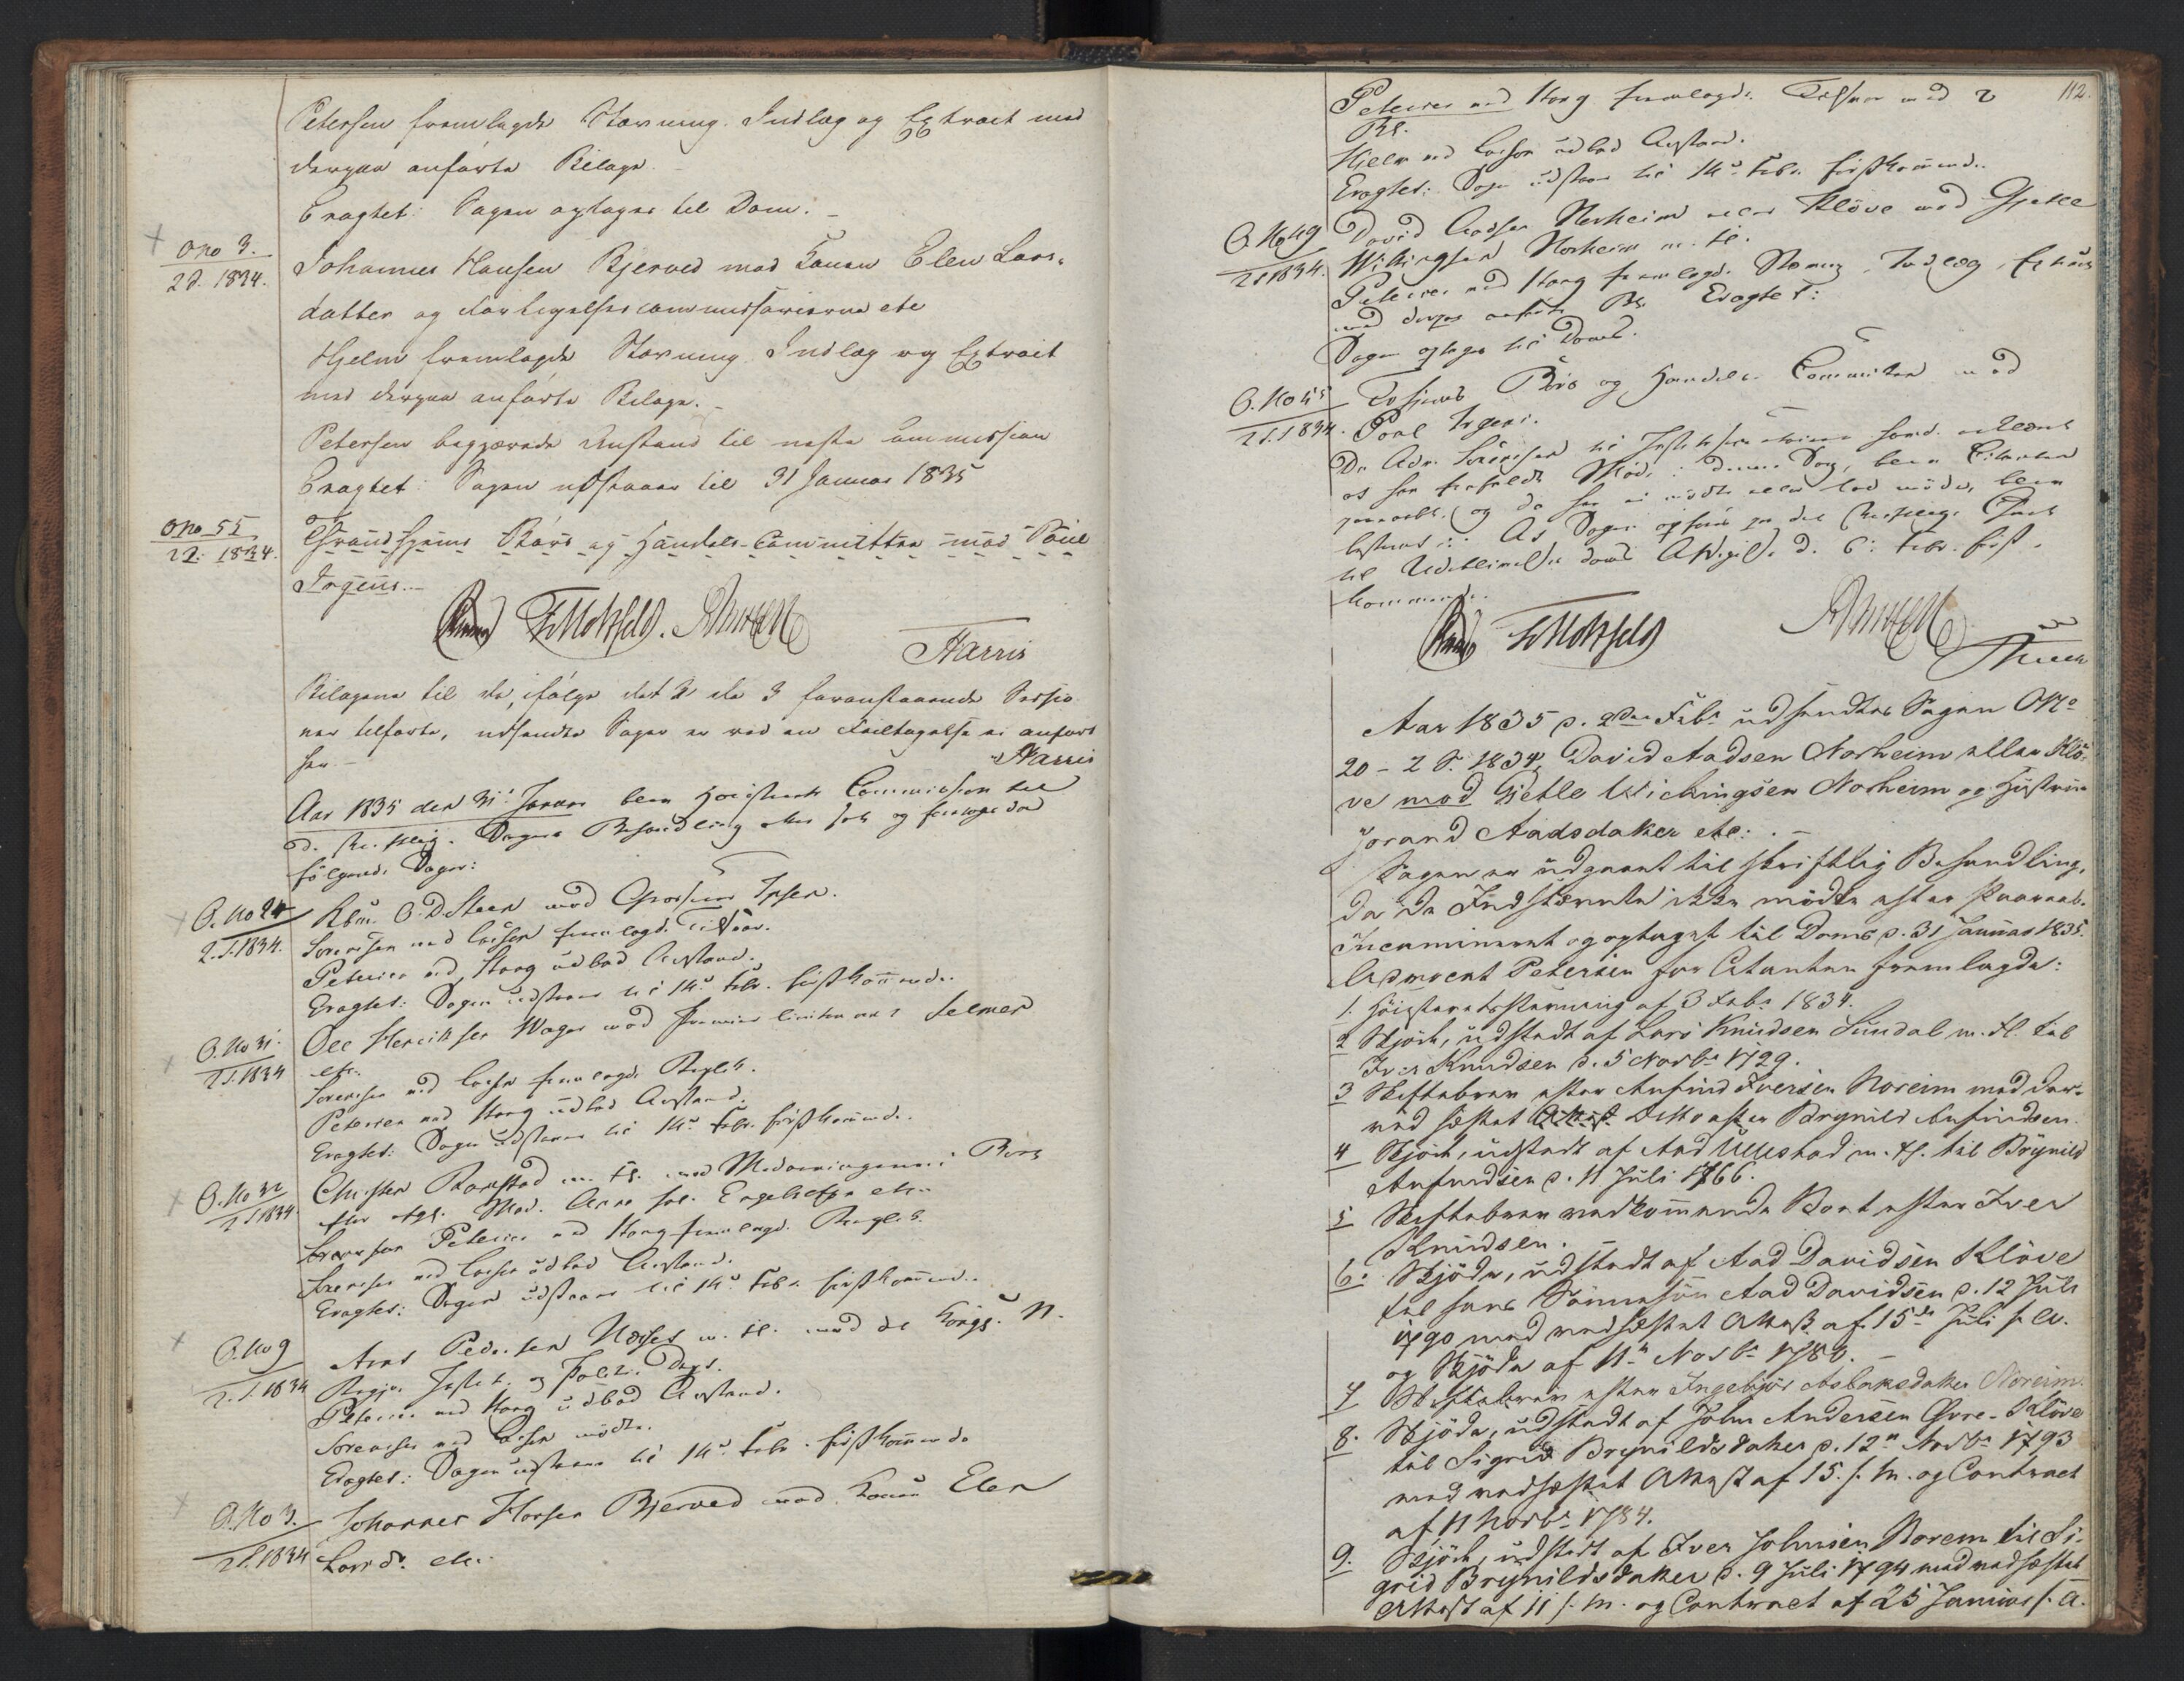 Petersen fremlagde Stævning. Indlæg og Extract med
derpaa anførte Bilage.
Eragtet: Sagen optages til Dom.
O No 3.
2 S. 1834.
Johannes Hansen Bjerved mod Konen Elen Lars-
datter og Forligelsescommissairerne etc
Hjelm fremlagde Stævning Indlæg og Extract
med derpaa anførte Bilage.
Petersen begjærede Anstand til næste Commission
Eragtet: Sagen udstaaer til 31 Januar 1835
O No 55
2 S. 1834.
Trondhjems Børs og Handels-Committee mod Poul
Irgens.
F Motzfeldt.
Harris
Bilagene til de, ifølge det i de 3 foranstaaende Sessio
ner tilførte, udsendte Sager er ved en Feiltagelse ei anført
her.
Harris
Aar 1835 den 31 Januar blev Høiesterets Commission til
d. skriftlig. Sagers Behandling atter sat og foretoges da
følgende Sager:
O. No 24
2. S. 1834.
Kbm. O. D. Steen mod Grosserer Ipsen.
Sørensen ved Larsen fremlagde Tilsvar.
Petersen ved Haag udbad Anstand.
Eragtet: Sagen udstaaer til 14de Febr. førstkommende.
O. No 31.
2 S. 1834
Ole Henriksen Wager mod Premierlieutenant Selmer
etc.
Sørensen ved Larsen fremlagde Replik.
Petersen ved Haag udbad Anstand.
Eragtet: Sagen udstaaer til 14de Febr. førstkommende.
O. No 32
2 S 1834
Christen Ramstad m. fl. mod Medarvingerne i Boet
efter afgl. Mad. Anne sal. Engelhardt etc.
Petersen ved Haag fremlagde Replik.
Sørensen ved Larsen udbad Anstand.
Eragtet: Sagen udstaaer til 14de Febr. førstkommende.
O. No 9
2. S. 1834
Arne Pedersen Næset m. fl. mod det Kongl. N.
Regjer. Justits og Politie Dept.
Petersen ved Haag udbad Anstand.
Sørensen ved Larsen mødte.
Eragtet: Sagen udstaaer til 14de Febr. førstkommende
O. No 3.
2 S. 1834
Johannes Hansen Bjerved mod Konen Elen
Larsdr. etc.
112.
Petersen ved Haag fremlagde Tilsvar med 2
Bil.
Hjelm ved Larsen udbad Anstand.
Eragtet: Sagen udstaaer til 14de Febr. førstkommende.
2 S 1834.
David Aadsen Norheim eller Kløve mod Gjetle
Wikingsen Norheim m. fl.
Petersen ved Haag fremlagde Stævning, Indlæg, Extract
med derpaa anførte Bil. Eragtet:
Sagen optages til Doms.
O. No 55
2 S. 1834.
Trhjems Børs og Handels-Committee mod
Poul Irgens.
Da Adv. Sørensen til Justitssecretairen havde meldt
at han frafaldt Møde i denne Sag, blev Citanten
paaraabt, og da han ei mødte eller lod møde, blev
bestemt: At Sagen opføres paa den skriftlige
til Udeblivelses Doms Afsigelse d. 6te Febr. først-
kommende.
F Motzfeldt
Aar 1835 d. 2den Febr. udsendtes Sagen O No
20 - 2 S. 1834, David Aadsen Norheim eller Klø-
ve mod Gjetle Wichingsen Norheim og Hustrue
Jorand Aadsdatter etc: .
Sagen er udgaaet til skriftlig Behandling,
da de Indstævnte ikke mødte efter Paaraab.
Incamineret og optaget til Doms d. 31 Januar 1835.
Advocat Petersen for Citanten fremlagde:
1. Høiesteretsstævning af 3 Febr. 1834.
2 Skjøde, udstedt af Lars Knudsen Sundal m. fl. til
Iver Knudsen d. 5 Novbr 1729.
3 Skiftebrev efter Anfind Iversen Noreim med der-
ved hæftet Ditto efter Brynild Anfindsen.
4 Skjøde, udstedt af Aad Ullestad m. fl. til Brynild
Anfindsen d. 11 Juli 1766.
5 Skiftebrev vedkommende Boet efter Iver
Knudsen.
6. Skjøde, udstedt af Aad Davidsen Kløve
til hans Sønnesøn Aad Davidsen d. 12 Juli
1790 med vedhæftet Attest af 15de Juli s. A.
og Skjøde af 11te Novbr
7 Skiftebrev efter Ingebjør Aslaksdatter Noreim.
8. Skjøde, udstedt af John Andersen Øvre-Kløve
til Sigrid Brynildsdatter d. 12te Novbr 1793
med vedhæftet Attest af 15. s. M. og Contract
af 11 Novbr 1784.
9. Skjøde, udstedt af Iver Johnsen Norem til Si-
grid Brynildsdatter d. 9 Juli 1794 med vedhæftet
Attest af 11 s. M. og Contract af 25 Januar s. A.